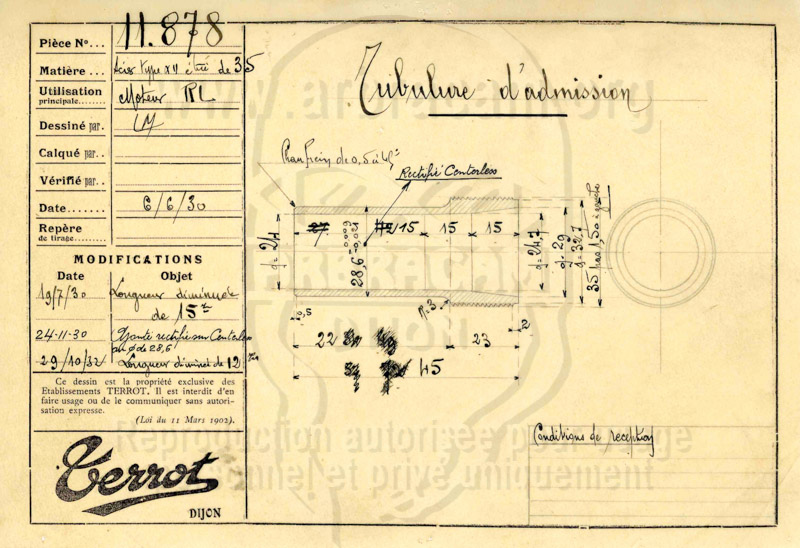 Pièce No... 11.878
Matière... Acier type XII étiré de 35
Utilisation principale........ Moteur RL
Dessiné par. LM
Calqué par..
Vérifié par..
Date....... 6/6/30
Repère de tirage.......
MODIFICATIONS
Date Objet
19/7/30 Longueur diminuée de 15
24-11-30 Ajouté rectifié sur Centerless
au ø de 28,6
29/10/32 Longueur diminuée de 12
Ce dessin est la propriété exclusive des
Etablissements TERROT. Il est interdit d'en
faire usage ou de le communiquer sans autori-
sation expresse.
(Loi du 11 Mars 1902).
Terrot
DIJON
Tubulure d'admission
Chanfrein de 0,5 à 45°
Rectifié Centerless
27 15 15 15
ø=24
28,6 -0,009 -0,021
ø=24,7
ø=29
ø=32,7
35 pas 1,50 à gauche
R=3
0,5
2
22 23
45
Conditions de réception
Reproduction autorisée pour usage
personnel et privé uniquement